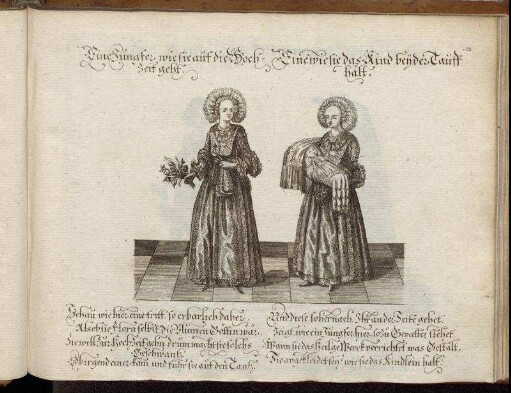 Eine Jungfer, wie sie auf die Hoch-
Zeit geht.
Eine wie sie das Kind bey der Tauff
halt.
Schau wie hier eine tritt so erbarlich daher
Als ob sie Flora selbst die Blumen Göttin wär,
Sie will zur Hochzeit gehn drum macht sie solch
Geschwänk
irgend einer kam und führ sie auf den Tantz.
Und diese so hernach, Ihr an der Seite gehet.
Zeigt wie ein Jungfer hier so zu Gevatter stehet.
Wann sie das heilge Werck verrichtet was Gestalt,
Sie angekleidet sey, wie sie das Kindlein halt.